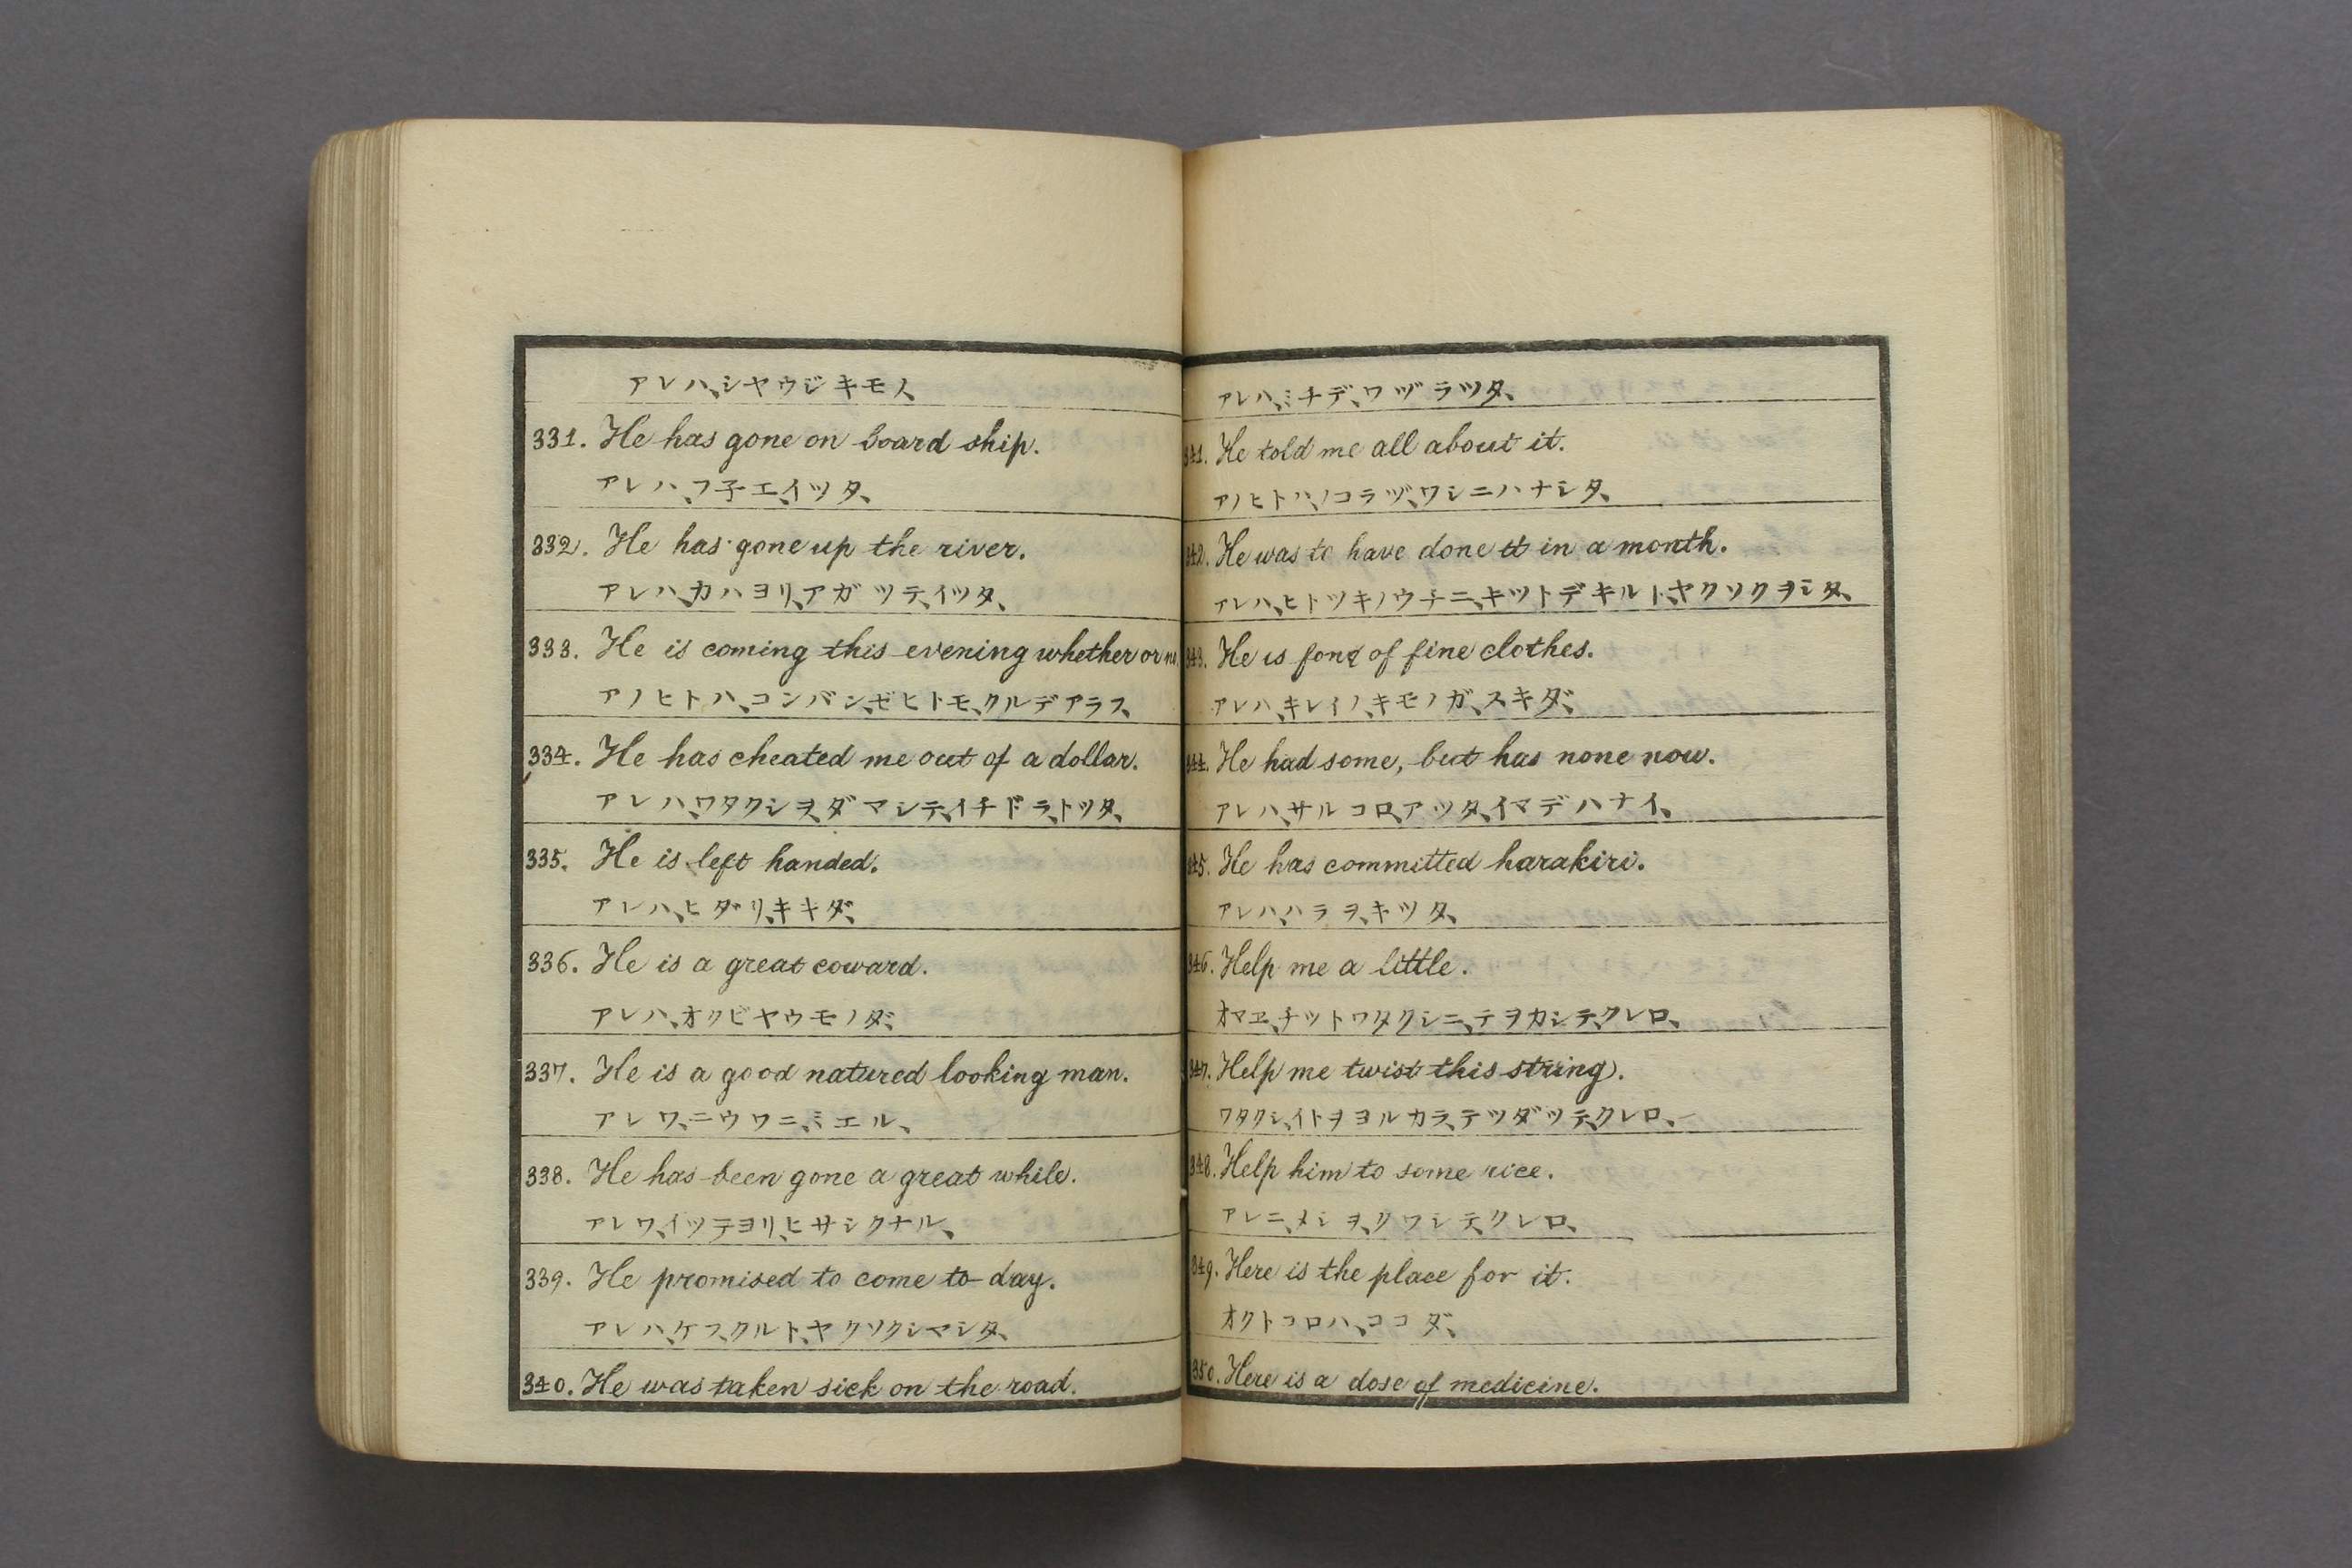 アレハ、シヤウジキモノ、
331. He has gone on board ship.
アレハ、フ子エ、イツタ、
332. He has gone up the river.
アレハ、カハヨリ、アガツテ、イツタ、
333. He is coming this evening whether or no.
アノヒトハ、コンバン、ゼヒトモ、クルデアラフ、
334. He has cheated me out of a dollar.
アレハ、ワタクシヲ、ダマシテ、イチドラ、トツタ、
335. He is left handed.
アレハ、ヒダリ、キキダ、
336. He is a great coward.
アレハ、オクビヤウモノダ、
337. He is a good natured looking man.
アレワ、ニウワニ、ミエル、
338. He has been gone a great while.
アレワ、イツテヨリ、ヒサシクナル、
339. He promised to come to-day.
アレハ、ケフ、クルト、ヤクソクシマシタ、
340. He was taken sick on the road.
アレハ、ミチデ、ワヅラツタ、
341. He told me all about it.
アノヒトハ、ノコラヅ、ワシニハナシタ、
342. He was to have done it in a month.
アレハ、ヒトツキノウチニ、キツトデキルト、ヤクソクヲシタ、
343. He is fond of fine clothes.
アレハ、キレイノ、キモノガ、スキダ、
344. He had some, but has none now.
アレハ、サルコロ、アツタ、イマデハナイ、
345. He has committed harakiri.
アレハ、ハラヲ、キツタ、
346. Help me a little.
オマヱ、チツトワタクシニ、テヲカシテ、クレロ、
347. Help me twist this string.
ワタクシ、イトヲヨルカラ、テツダツテ、クレロ、
348. Help him to some rice.
アレニ、メシヲ、クワシテ、クレロ、
349. Here is the place for it.
オクトコロハ、ココダ、
350. Here is a dose of medicine.